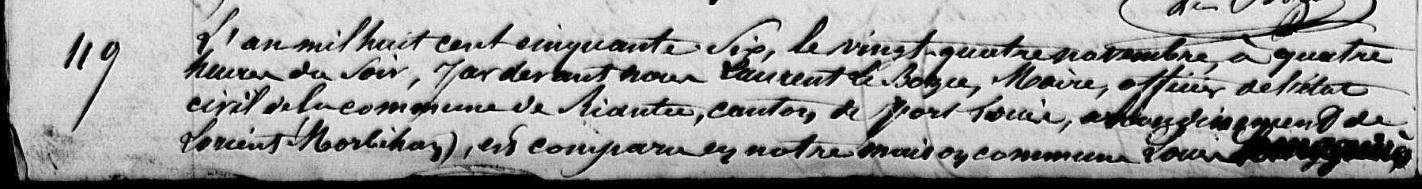 119
L'an mil huit cent cinquante Six, le vingt-quatre novembre, à quatre
heures du Soir, par devant nous Laurent Le Boyee, Maire, officier de l'état
civil de la commune de Riantec, canton de Port Louis, arrondissement de
Lorient Morbihan), est comparu en notre maison commune Louis